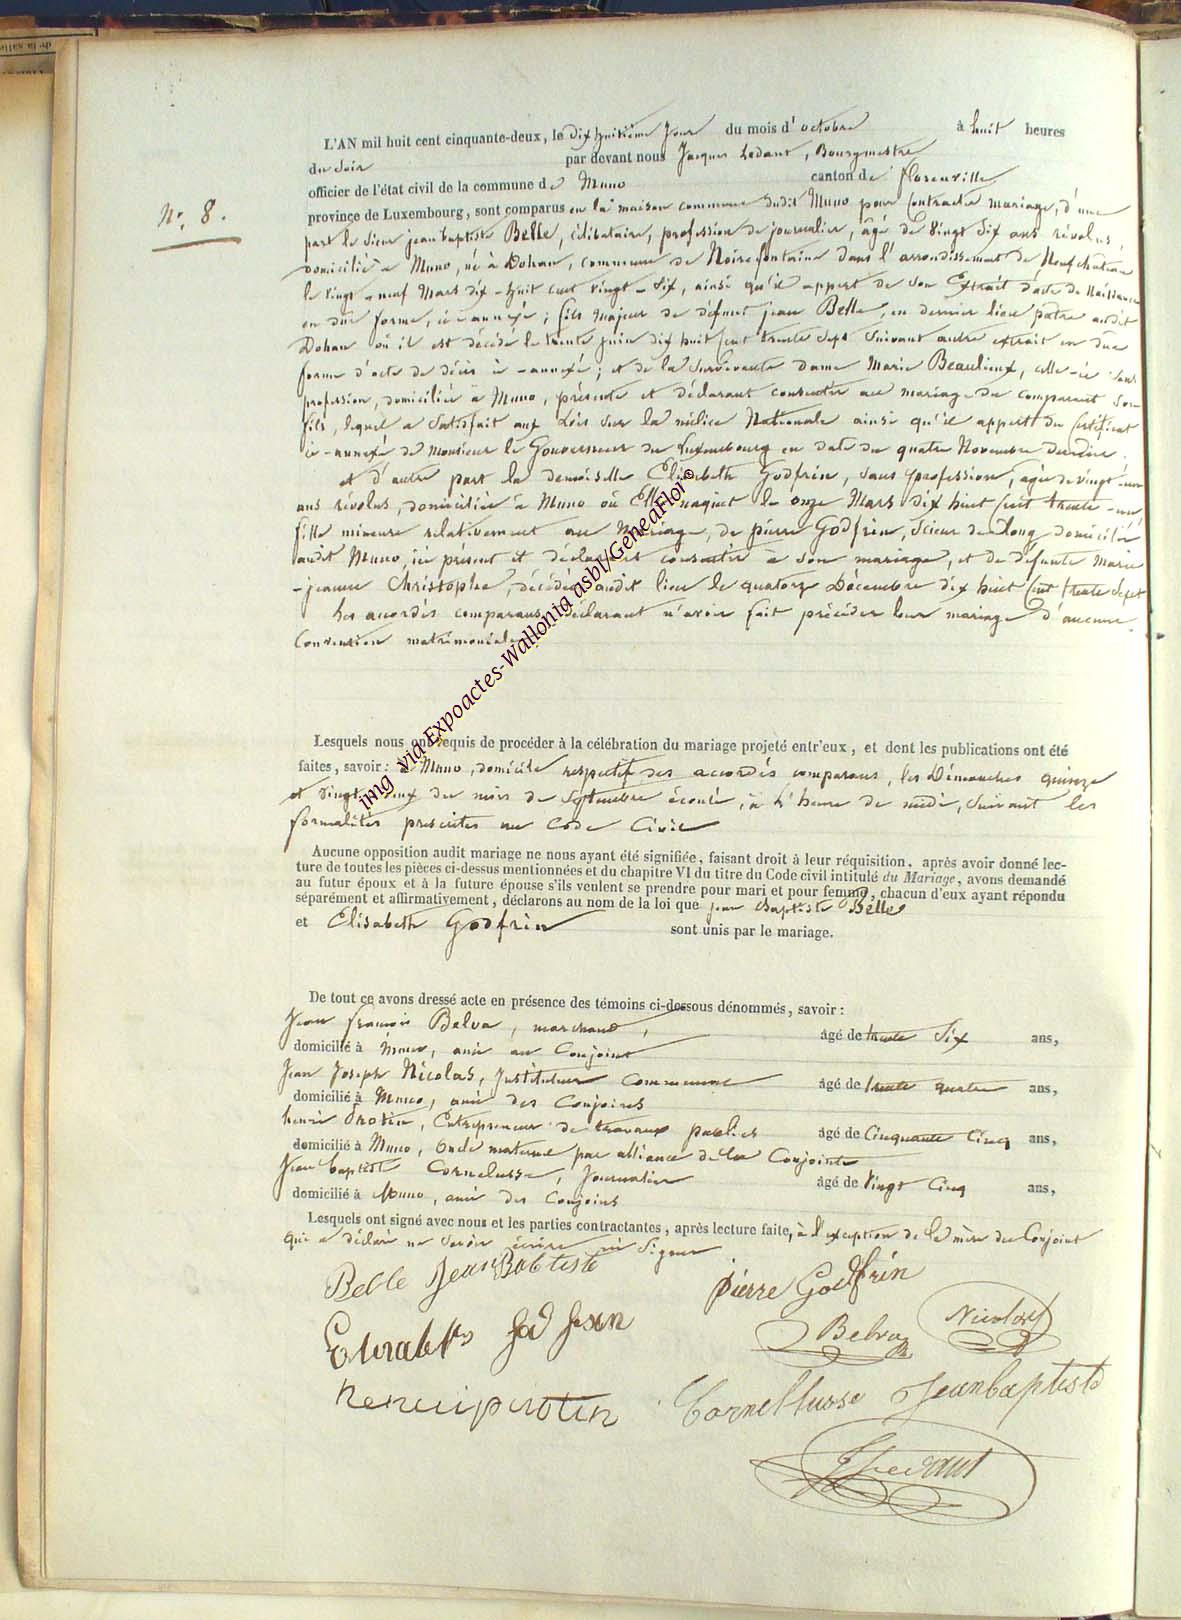 L'AN mil huit cent cinquante-deux, le dix huitième jour du mois d' octobre à huit heures
du soir par devant nous Jacques Ledant, Bourgmestre
officier de l'état civil de la commune de Muno canton de florenville
N.° 8.
province de Luxembourg, sont comparus en la maison commune dudit Muno pour contracter mariage, d'une
part le sieur jean baptiste Belle, célibataire, profession de journalier, âgé de vingt six ans révolus,
domicilié à Muno, né à Dohan, commune de Noirefontaine dans l'arrondissement de Neufchateau
le vingt-neuf Mars dix-huit cent vingt-six, ainsi qu'il appert de son Extrait d'acte de Naissance
en due forme, ci-annexé; fils majeur de défunt jean Belle, en dernier lieu pâtre audit
Dohan où il est décédé le trente juin dix huit cent trente sept suivant autre extrait en due
forme d'acte de décès ci-annexé; et de la survivante dame Marie Beaulieux, celle-ci sans
profession, domiciliée à Muno, présente et déclarant consentir au mariage du comparant son
fils, lequel a satisfait aux Lois sur la milice Nationale ainsi qu'il appert du Certificat
ci-annexé de Monsieur le Gouverneur du Luxembourg en date du quatre Novembre dernier.
et d'autre part la demoiselle Elisabeth Godfrin, sans profession, âgée de vingt-un
ans révolus, domiciliée à Muno où Elle naquit le onze Mars dix huit cent trente-un
fille mineure relativement au Mariage, de pierre Godfrin, scieur de long domicilié
audit Muno, ici présent et déclarant consentir à son mariage, et de défunte Marie
-jeanne Christophe, décédée audit lieu le quatorze Décembre dix huit cent trente sept
Les accordés comparans déclarant n'avoir fait précéder leur mariage d'aucune
Convention matrimoniale
img via Expoactes-Wallonia asbl/GeneaFlor©
Lesquels nous ont requis de procéder à la célébration du mariage projeté entr'eux, et dont les publications ont été
faites, savoir: à Muno, domicile respectif des accordés comparans, les Dimanches quinze
et vingt-deux du mois de Septembre écoulé, à l'heure de midi, suivant les
formalités prescrites au Code Civil
Aucune opposition audit mariage ne nous ayant été signifiée, faisant droit à leur réquisition, après avoir donné lec-
ture de toutes les pièces ci-dessus mentionnées et du chapitre VI du titre du Code civil intitulé du Mariage, avons demandé
au futur époux et à la future épouse s'ils veulent se prendre pour mari et pour femme, chacun d'eux ayant répondu
séparément et affirmativement, déclarons au nom de la loi que jean Baptiste Belle
et Elisabeth Godfrin sont unis par le mariage.
De tout ce avons dressé acte en présence des témoins ci-dessous dénommés, savoir:
Jean françois Belva, marchand, âgé de trente six ans,
domicilié à Muno, ami au Conjoint
Jean Joseph Nicolas, Instituteur Communal âgé de trente quatre ans,
domicilié à Muno, ami des Conjoints
henri Protin, Entrepreneur de travaux publics âgé de Cinquante Cinq ans,
domicilié à Muno, oncle maternel par alliance de la Conjointe
Jean baptiste Cornelusse, Journalier âgé de vingt Cinq ans,
domicilié à Muno, ami des Conjoints
Lesquels ont signé avec nous et les parties contractantes, après lecture faite, à l'exception de la mère du Conjoint
qui a déclaré ne savoir écrire ni signer
Belle Jean Babtiste pierre Godfrin
Belva Nicolas
Godfrin
henri protin Cornellusse Jeanbaptiste
J Ledant